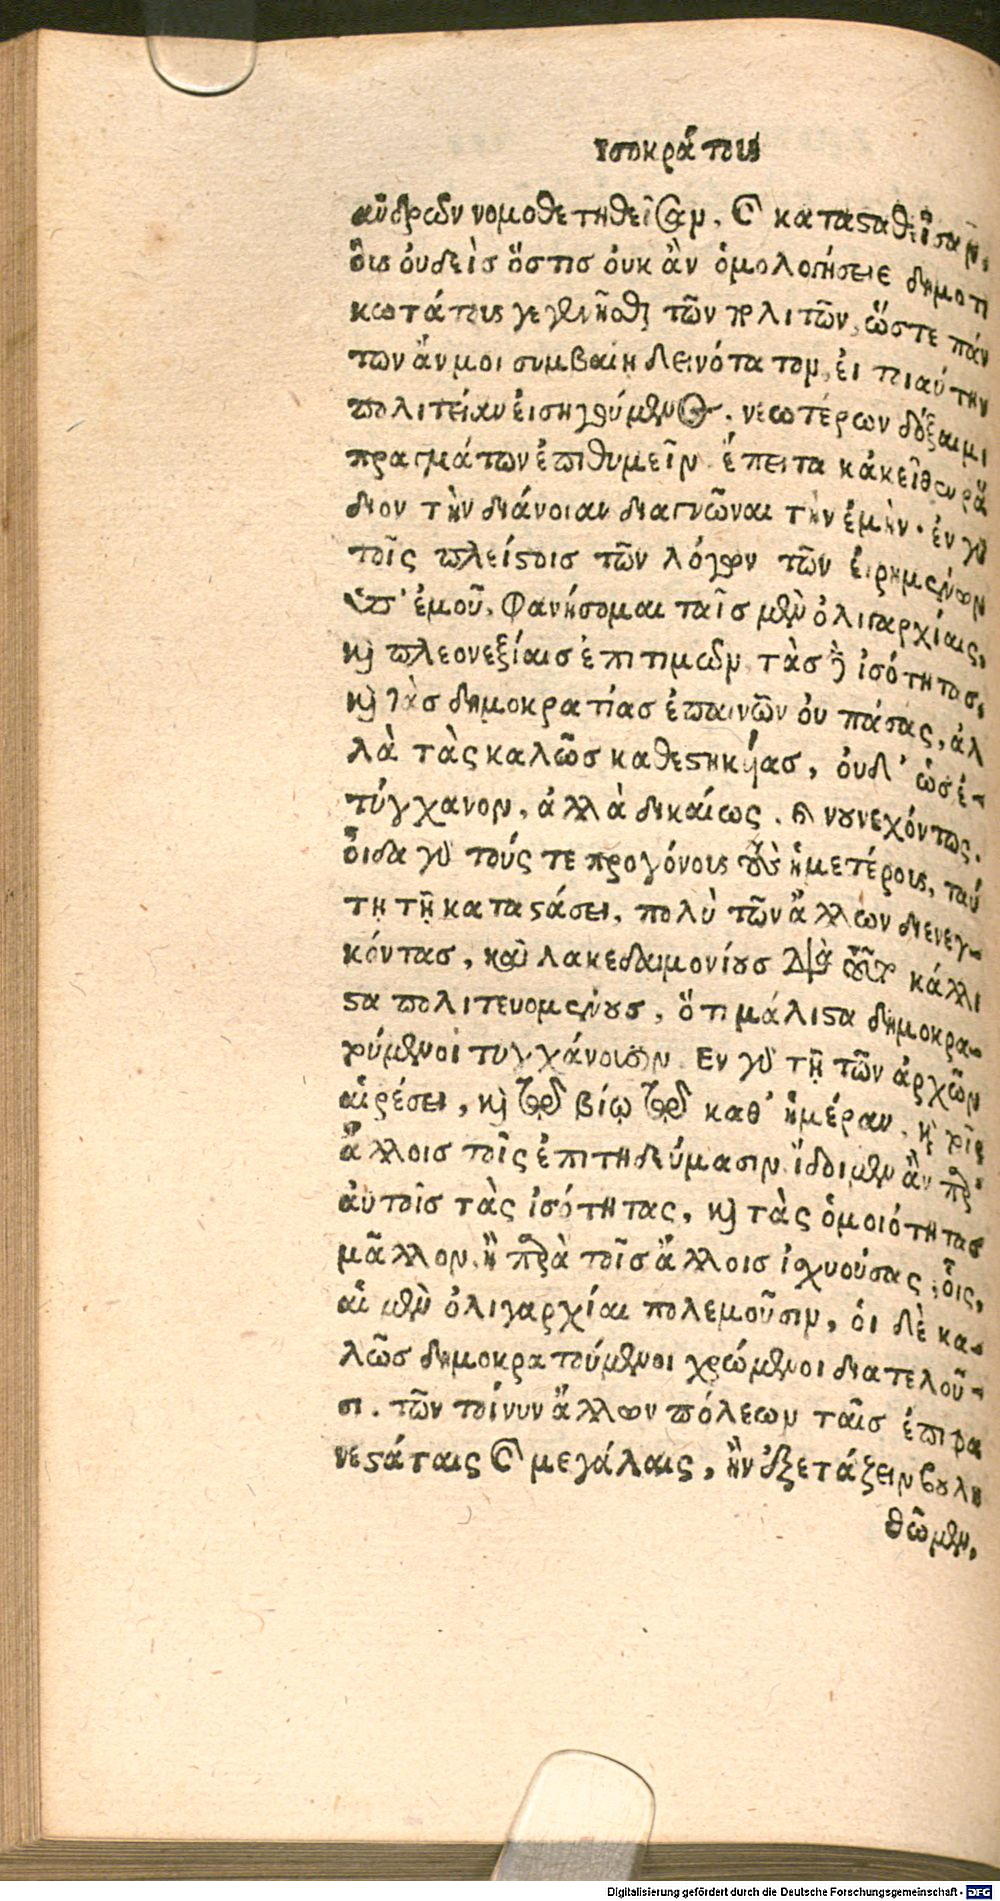 ἰσοκράτους
ἀνδρῶν νομοθετηθεῖσαν, καὶ κατασταθεῖσαν,
οἷς οὐδεὶς ὅστις οὐκ ἂν ὁμολογήσειε δημοτι
κωτάτους γεγενῆσθαι τῶν πολιτῶν, ὥστε πάν
των ἄν μοι συμβαίη δεινότατον, εἰ τοιαύτην
πολιτείαν εἰσηγούμενος. νεωτέρων δόξαιμι
πραγμάτων ἐπιθυμεῖν. ἔπειτα κἀκεῖθεν ῥᾴ
διον τὴν διάνοιαν διαγνῶναι τὴν ἐμήν. ἐν γὰρ
τοῖς πλείστοις τῶν λόγων τῶν εἰρημένων
ὑπ' ἐμοῦ, φανήσομαι ταῖς μὲν ὀλιγαρχίαις,
καὶ πλεονεξίαις ἐπιτιμῶν, τὰς δὲ ἰσότητας,
καὶ τὰς δημοκρατίας ἐπαινῶν οὐ πάσας, ἀλ
λὰ τὰς καλῶς καθεστηκυίας, οὐδ' ὡς ἐ-
τύγχανον, ἀλλὰ δικαίως. καὶ νουνεχόντως.
οἶδα γὰρ τούς τε προγόνους τοὺς ἡμετέρους, ταύ
τῃ τῇ καταστάσει, πολὺ τῶν ἄλλων διενεγ-
κόντας, καὶ λακεδαιμονίους διὰ τοῦτο κάλλι
στα πολιτευομένους, ὅτι μάλιστα δημοκρα-
τούμενοι τυγχάνουσιν. Ἐν γὰρ τῇ τῶν ἀρχῶν
αἱρέσει, καὶ τῷ βίῳ τῷ καθ' ἡμέραν, καὶ τοῖς
ἄλλοις τοῖς ἐπιτηδεύμασιν ἴδοιμεν ἂν παρ'
αὐτοῖς τὰς ἰσότητας, καὶ τὰς ὁμοιότητας
μᾶλλον, ἢ παρὰ τοῖς ἄλλοις ἰσχυούσας, οἷς,
αἱ μὲν ὀλιγαρχίαι πολεμοῦσιν, οἱ δὲ κα-
λῶς δημοκρατούμενοι χρώμενοι διατελοῦ-
σι. τῶν τοίνυν ἄλλων πόλεων ταῖς ἐπιφα
νεστάταις καὶ μεγάλαις, ἢν ἐξετάζειν βουλη
θῶμεν,
Digitalisierung gefördert durch die Deutsche Forschungsgemeinschaft - DFG